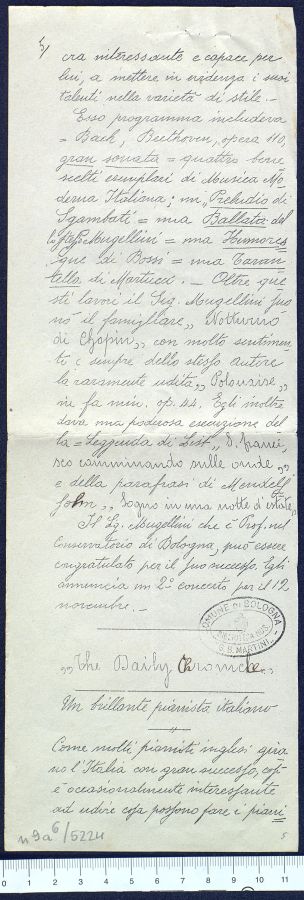 5/
era interessante e capace per
lui, a mettere in evidenza i suoi
talenti nella varietà di stile. —
Esso programma includeva
= Bach, Beethoven, opera 110,
gran sonata = quattro bene
scelti esemplari di Musica Mo=
derna Italiana; un „Preludio di
Sgambati = una Ballata del
lo stesso Mugellini = una Humores
que di Bossi = una Taran=
tella di Martucci. — Oltre que
sti lavori il Sig. Mugellini suo
nò il famigliare „Notturno
di Chopin„ con molto sentimen
to e sempre dello stesso autore
la raramente udita „Polonaise„
in fa min. op. 44. Egli inoltre
dava una poderosa esecuzione del
la = Leggenda di List „S. Franc
sco camminando sulle onde„
e della parafrasi di Mendels
sohn „Sogno in una notte d'estate„
Il Sg. Mugellini che è Prof. nel
Conservatorio di Bologna, può essere
congratulato per il suo successo. Egli
annuncia un 2º concerto per il 12
novembre. —
COMUNE DI BOLOGNA
BIBLIOTECA MUS.
G. B. MARTINI
„The Daily Chronicle„
Un brillante pianista italiano
Come molti pianisti inglesi gira
no l'Italia con gran successo, così
è occasionalmente interessante
ad udire cosa possono fare i piani
n9a6/5224
5
0 1 2 3 4 5 6 7 8 9 10 11